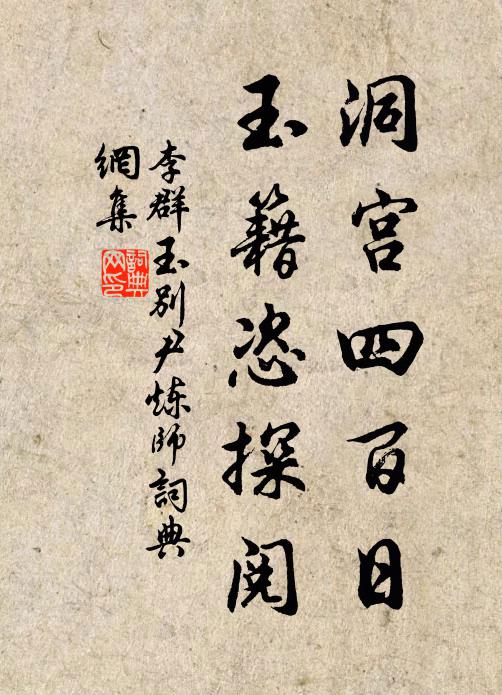 洞宫四百日
玉籍恣探阅
李群玉别尹炼师詞典
網集
詞典
网印